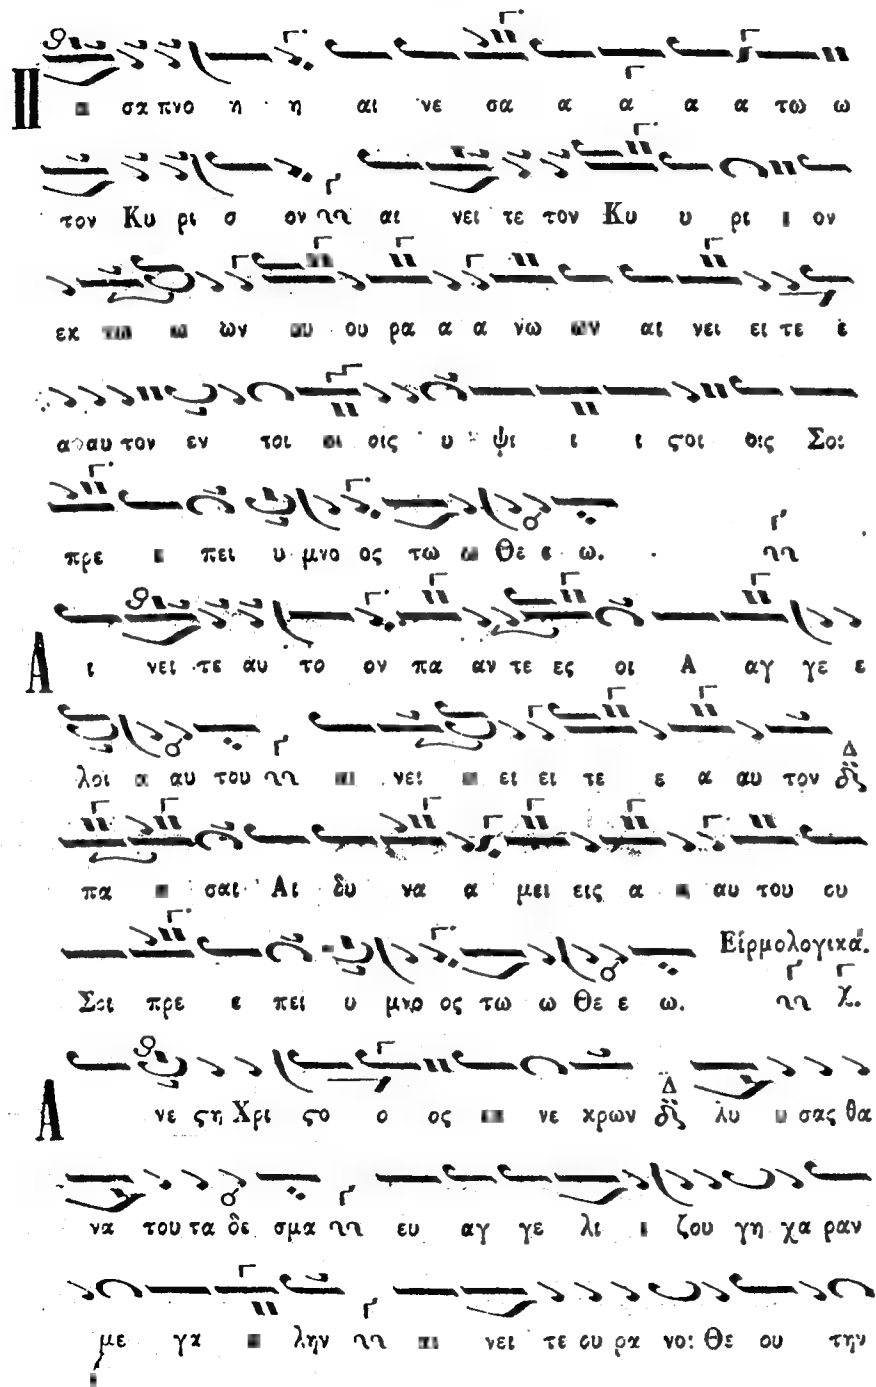 Π σα πνο η η αι νε σα α α α α τω ω
τον Κυ ρι ον αι νει τε τον Κυ υ ρι ι ον
εκ ω ων ου ρα α α νω ων αι νει ει τε ε
αυ τον εν τοι οις υ ψι ι ι ϛοι Σοι
πρε πει υ μνο ος τω ω Θε ε ω.
Α ι νει τε αυ το ον πα αν τε ες οι Α αγ γε ε
λοι α αυ του νει ει ει τε ε α αυ τον
πα σαι Αι δυ να α μει εις α αυ του ου
Ειρμολογικά.
Σοι πρε ε πει υ μνο ος τω ω Θε ε ω.
Α νε ϛη Χρι ϛο ο ος νε κρων λυ σας θα
να του τα δε σμα ευ αγ γε λι ι ζου γη χα ραν
με γα λην νει τε ου ρα νοι Θε ου την